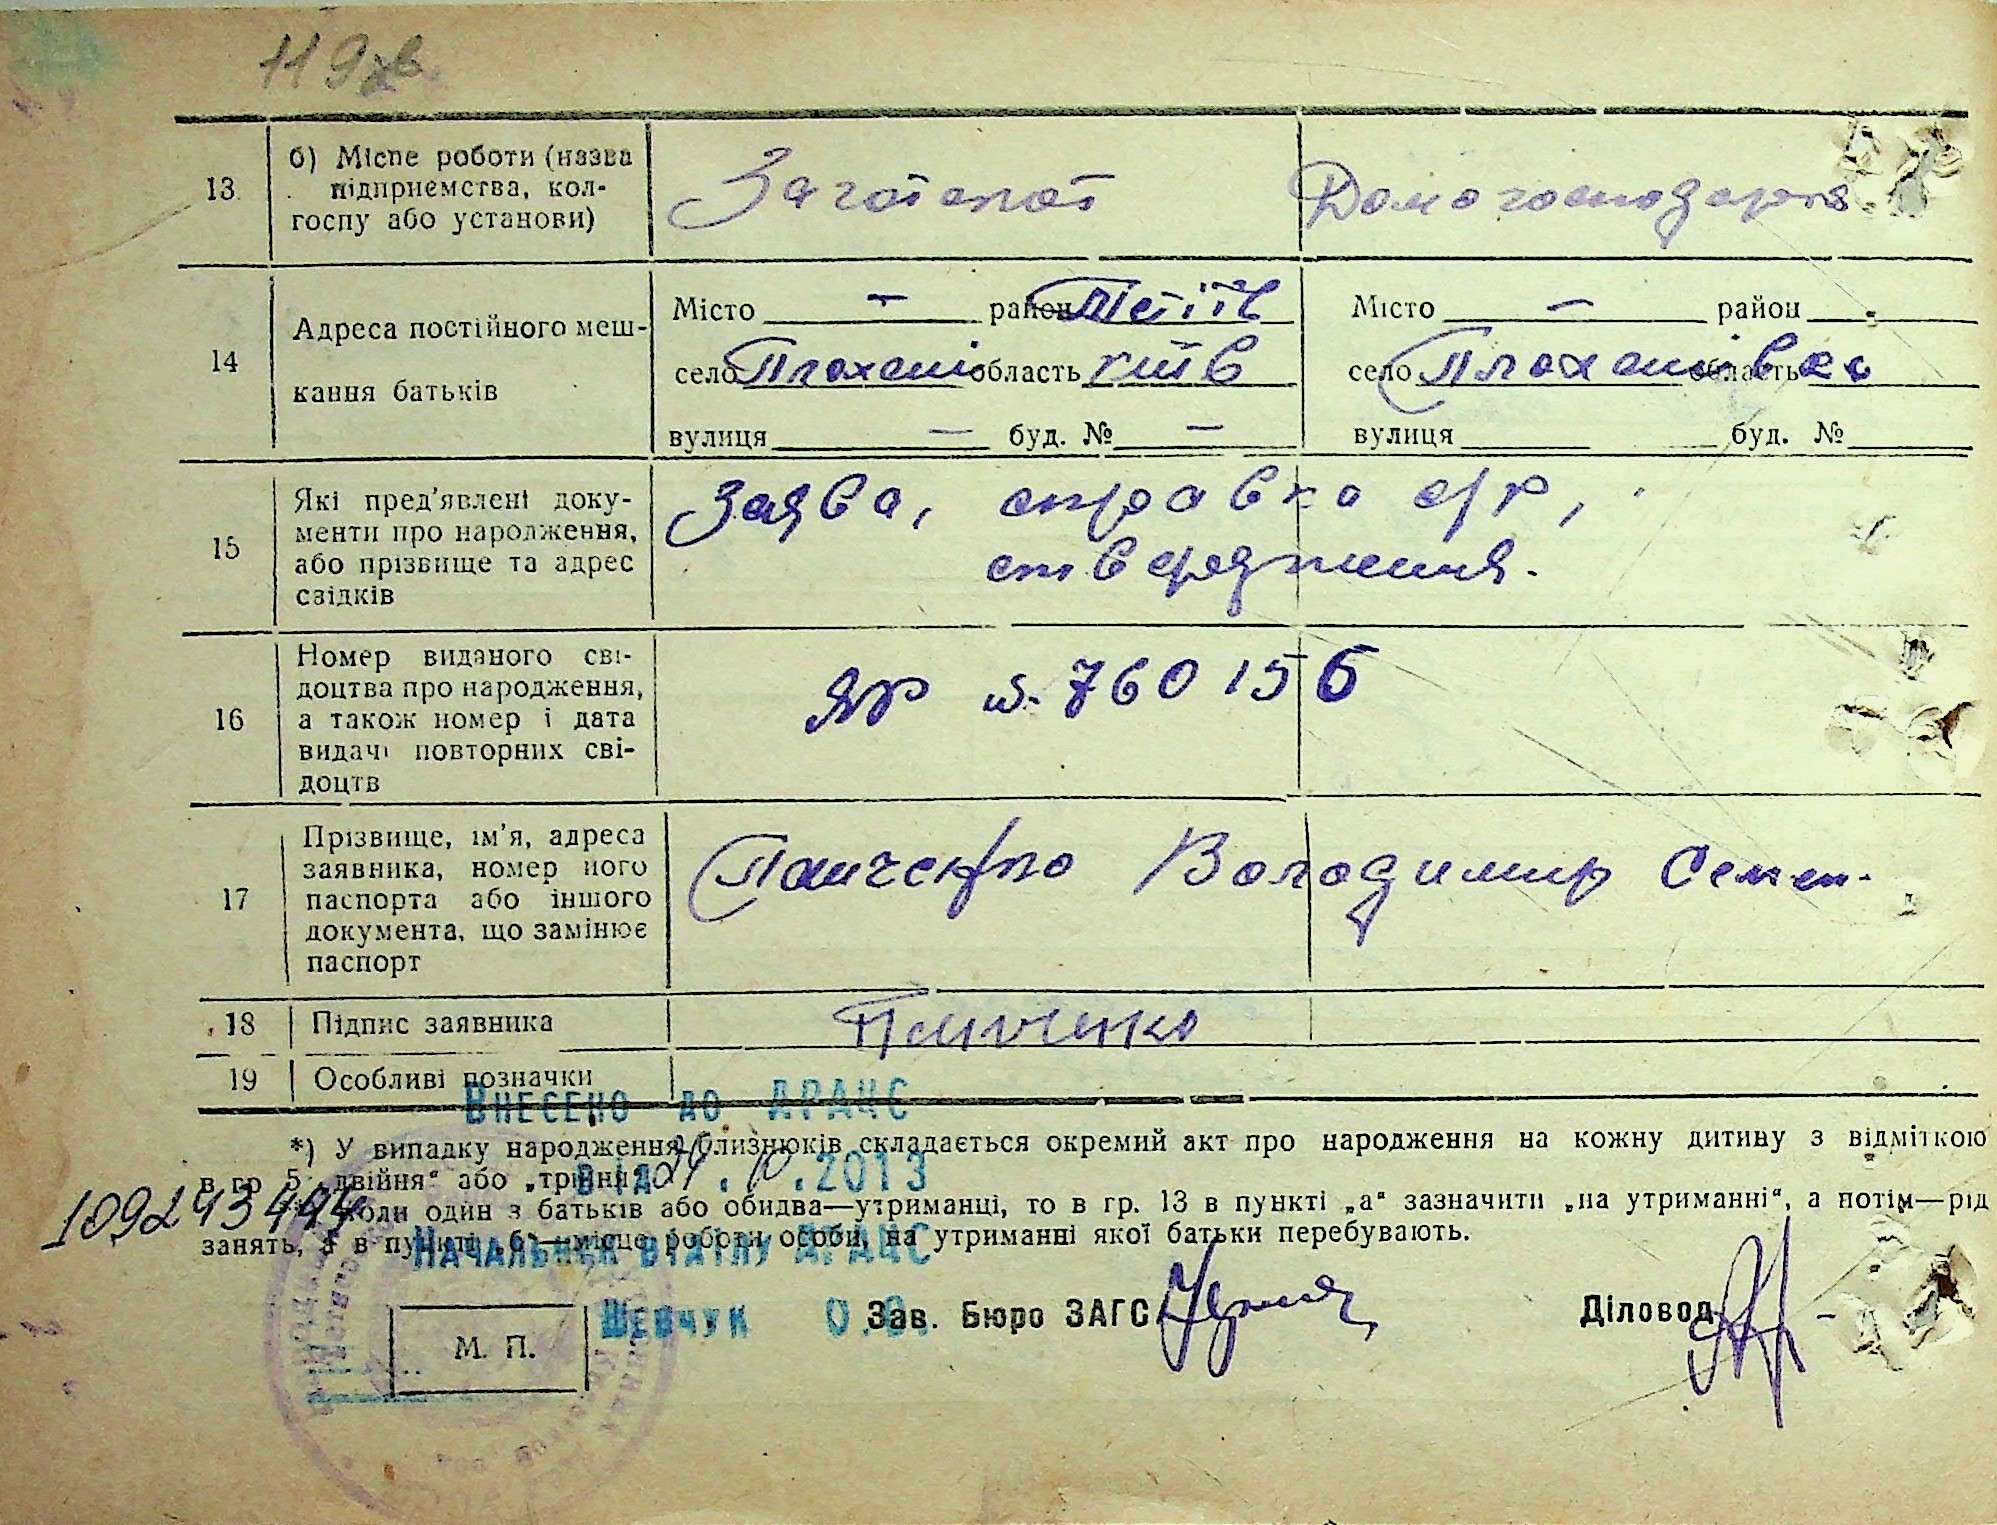 119 зв
13. б) Місце роботи (назва підприємства, колгоспу або установи) Заготскот Домогосподарка
14 Адреса постійного мешкання батьків
Місто — район Тетіїв Місто — район
село Плохені область Київ село область
вулиця — буд. № — вулиця буд. №
15 Які пред'явлені документи про народження, або прізвище та адрес свідків
Заява, справка с/р,
ствердження.
16 Номер виданого свідоцтва про народження, а також номер і дата видачі повторних свідоцтв
ЯР № 760156
17 Прізвище, ім'я, адреса заявника, номер його паспорта або іншого документа, що замінює паспорт
Панченко Володимир Семен.
18 Підпис заявника Панченко
19 Особливі позначки
Внесено до ДРАЦС
*) У випадку народження близнюків складається окремий акт про народження на кожну дитину з відміткою
від 24.10.2013
в гр 5 „двійня“ або „трійня“.
109243444
Коли один з батьків або обидва—утриманці, то в гр. 13 в пункті „а“ зазначити „на утриманні“, а потім—рід
занять, а в пункті „б“—місце роботи особи, на утриманні якої батьки перебувають.
Начальник відділу ДРАЦС
Шевчук О.О.
Зав. Бюро ЗАГС Діловод
М. П.